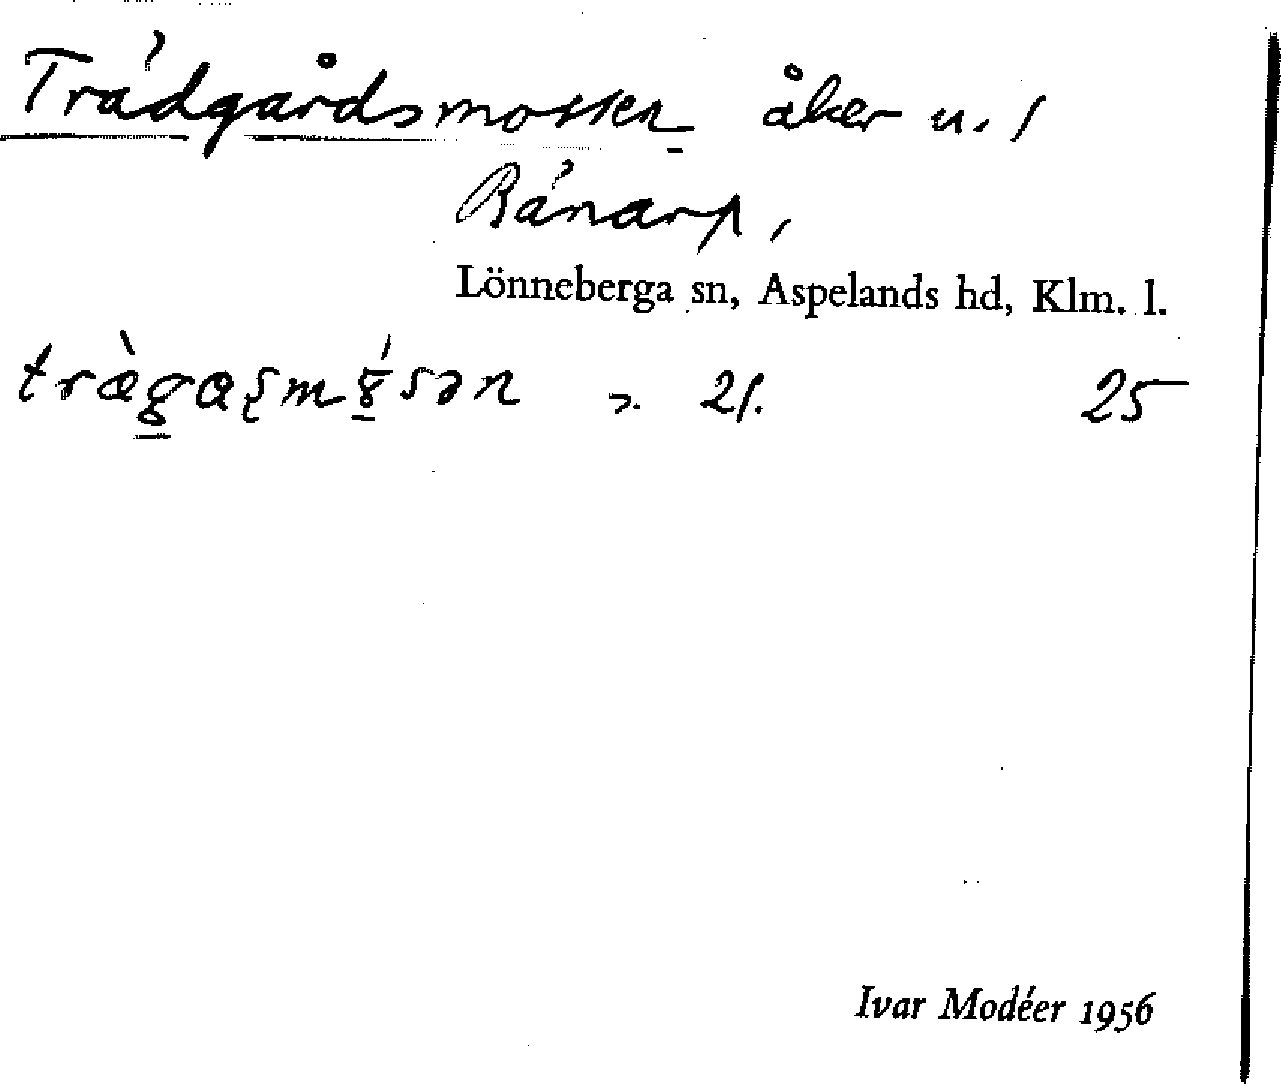 Trädgårdsmossen åker u. /
Bänarp,
Lönneberga sn, Aspelands hd, Klm. l.
21. 25
Ivar Modéer 1956